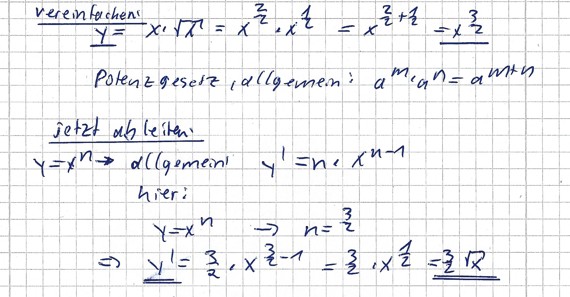 vereinfachen:
y = x · √x = x^(2/2) · x^(1/2) = x^(2/2 + 1/2) = x^(3/2)
Potenzgesetz, allgemein: a^m · a^n = a^(m+n)
jetzt ableiten:
y = x^n → allgemein y' = n · x^(n-1)
hier:
y = x^n → n = 3/2
⇒ y' = 3/2 · x^(3/2 - 1) = 3/2 · x^(1/2) = 3/2 √x